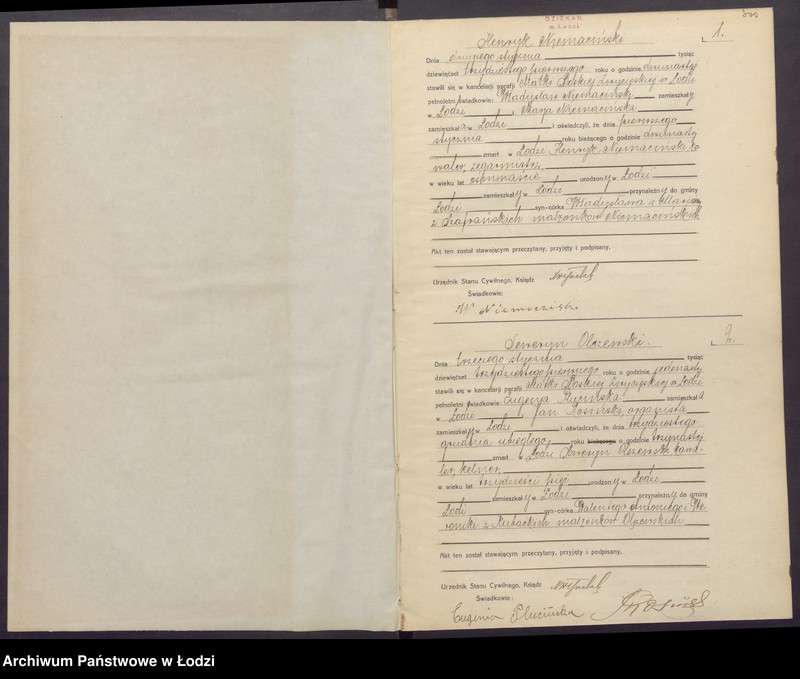 DZIEKAN
w Łodzi
300
Henryk Niemaciński
1.
Dnia drugiego stycznia tysiąc
dziewięćset trzydziestego pierwszego roku o godzinie dwunastej
stawili się w kancelarji parafji Matki Boskiej Zwycięskiej w Łodzi
pełnoletni świadkowie: Władysław Niemaciński zamieszkały
w Łodzi i Marja Niemacińska
zamieszkała w Łodzi i oświadczyli, że dnia pierwszego
stycznia roku bieżącego o godzinie dwunastej
zmarł w Łodzi Henryk Niemaciński, ka-
waler, zegarmistrz,
w wieku lat osiemnaście urodzony w Łodzi
zamieszkały w Łodzi przynależny do gminy
Łodzi syn-córka Władysława i Marjanny
z Szafrańskich małżonków Niemacińskich
Akt ten został stawającym przeczytany, przyjęty i podpisany.
Urzędnik Stanu Cywilnego, Ksiądz
Świadkowie:
W Niemaciński
Seweryn Olszewski.
2.
Dnia trzeciego stycznia tysiąc
dziewięćset trzydziestego pierwszego roku o godzinie jedenastej
stawili się w kancelarji parafji Matki Boskiej Zwycięskiej w Łodzi
pełnoletni świadkowie: Eugenja Plucińska zamieszkała
w Łodzi i Jan organista
zamieszkały w Łodzi i oświadczyli, że dnia trzydziestego
grudnia ubiegłego roku bieżącego o godzinie trzynastej
zmarł w Łodzi Seweryn Olszewski, kawa-
ler, kelner,
w wieku lat trzydzieści pięć urodzony w Łodzi
zamieszkały w Łodzi przynależny do gminy
Łodzi syn-córka Walentego Antoniego i We-
roniki z małżonków Olszewskich
Akt ten został stawającym przeczytany, przyjęty i podpisany.
Urzędnik Stanu Cywilnego, Ksiądz
Świadkowie:
Eugenia Plucińska
Archiwum Państwowe w Łodzi